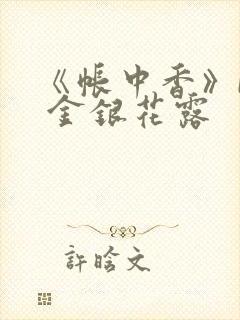 《帳中香》
金銀花露
許晗文